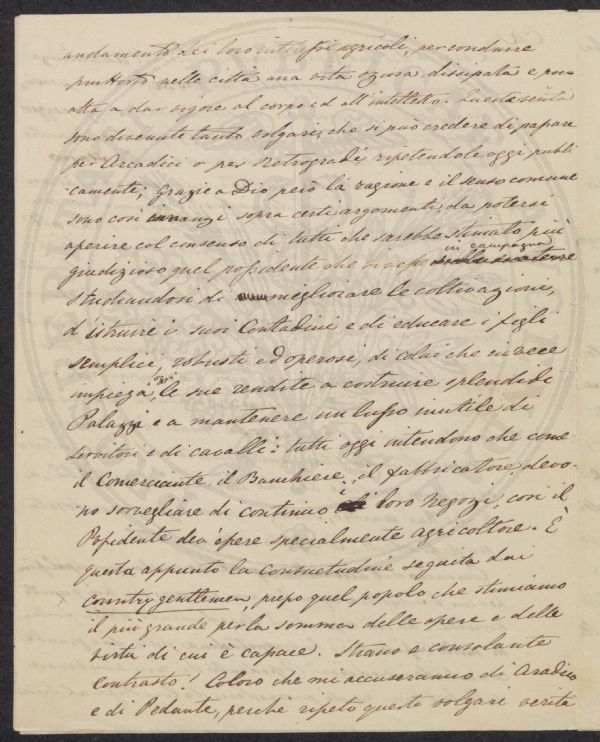 andamento dei loro interessi agricoli, per condurre
piuttosto nelle città una vita oziosa, dissipata e poco
atta a dar vigore al corpo ed all'intelletto. Queste verità
sono divenute tanto volgari, che si può credere di passare
per Arcadici o per Retrogradi ripetendole oggi pubbli
camente; grazie a Dio però la ragione e il senso comune
sono così innanzi sopra certi argomenti, da potersi
asserire col consenso di tutti che sarebbe stimato più
giudizioso quel possidente che vivesse in campagna
studiandosi di migliorare le coltivazioni,
d'istruire i suoi Contadini e di educare i figli
semplici, robusti ed operosi, di colui che invece
impiega le sue rendite a costruire splendidi
Palazzi e a mantenere un lusso inutile di
servitori e di cavalli: tutti oggi intendono che come
il Comerciante, il Banchiere, il fabbricatore devo-
no sorvegliare di continuo i loro Negozi, così il
Possidente dev'essere specialmente agricoltore. È
questa appunto la consuetudine seguita dai
country gentlemen, presso quel popolo che stimiamo
il più grande per la somma delle opere e delle
virtù di cui è capace. Strano e consolante
contrasto! Coloro che mi accuseranno di Arcadico
e di Pedante, perché ripeto queste volgari verità